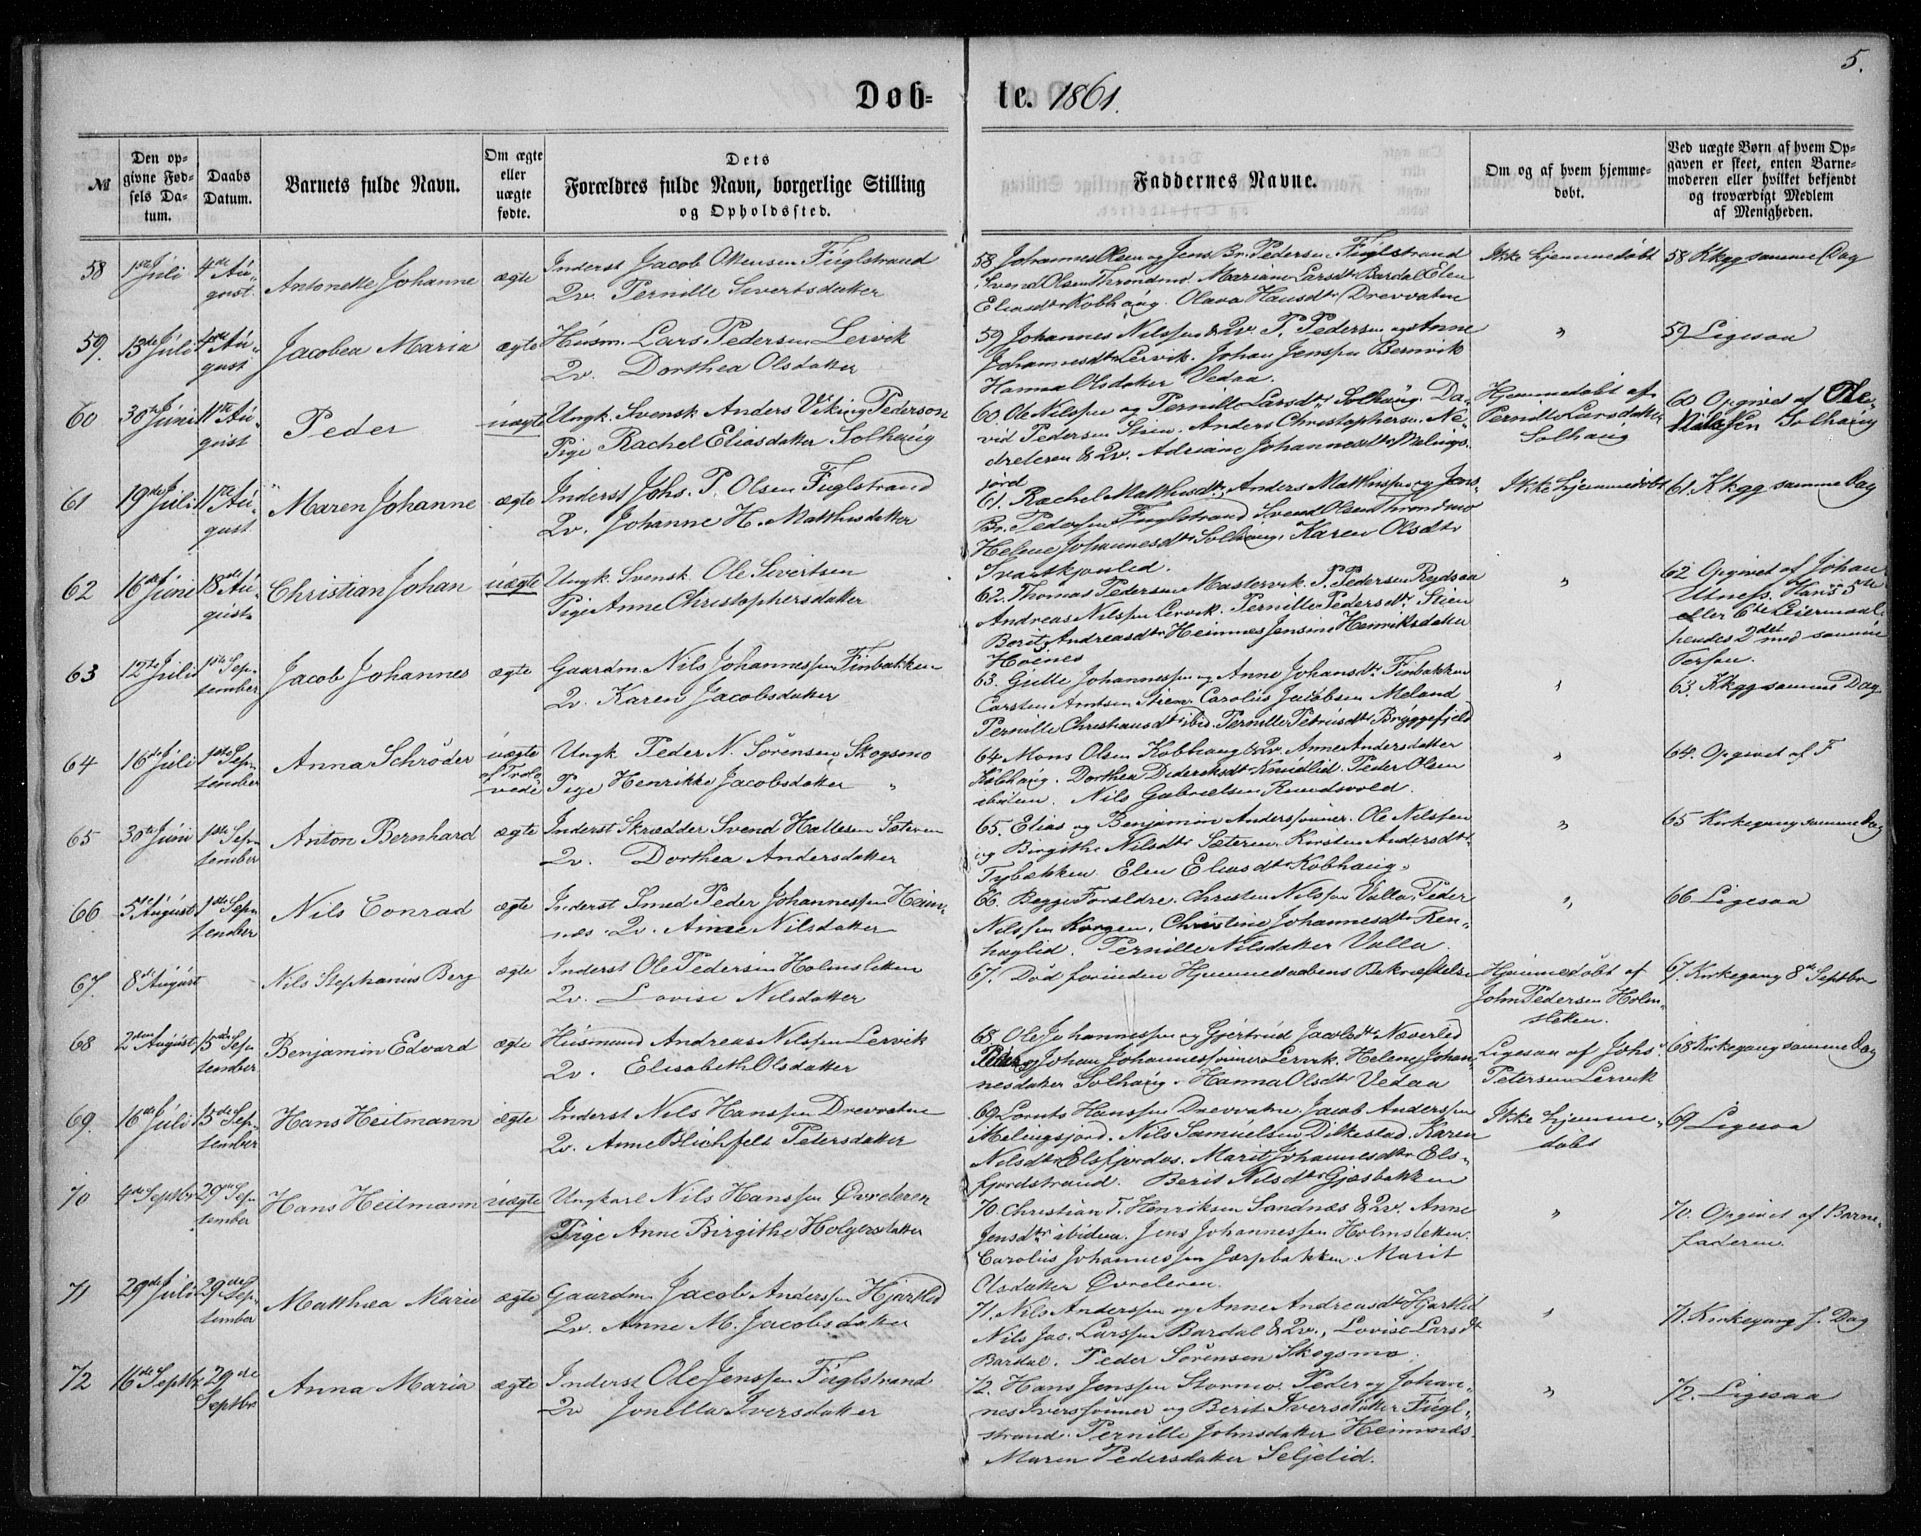 5.
Døb=te. 1861.
№
Den opgivne Fødsels Datum.
Daabs Datum.
Barnets fulde Navn.
Om ægte eller uægte fødte.
Dets Forældres fulde Navn, borgerlige Stilling og Opholdssted.
Faddernes Navne.
Om og af hvem hjemmedøbt.
Ved uægte Børn af hvem Opgaven er skeet, enten Barnemoderen eller hvilket bekjendt og troværdigt Medlem af Menigheden.
58 1ste Júli 4de Aúgust. Antonette Johanne ægte
Inderst Jacob Ottensen Fúglstrand
Qv. Pernille Sivertsdatter
58 Johannes Olsen og Jens Br. Pedersen Fúglstrand
Svend Olsen Throndmo. Mariane Larsdtr Bardal. Elen
Eliasdtr Kobhaúg. Olava Hansdtr Drevvatne
Ikke hjemmedøbt
58 Kkgg samme Dag
59. 13de Júli 4de Aúgust Jacobea Maria ægte
Húsm. Lars Pedersen Lervik
Qv. Dorthea Olsdatter
59 Johannes Nilssen & Qv. P. Pedersen og Anne
Johannesdtr Lervik. Johan Jenssen Bernvik
Hanna Olsdatter Vedaa.
"
59 Ligesaa
60 30te Júni 11te Aúgust Peder úægte
Ungk. Svensk Anders Viking Pederson
Pige Rachel Eliasdatter Solhaúg
60. Ole Nilssen og Pernille Larsdtr Solhaúg. Da-
vid Pedersen Stien. Anders Christophersen Ne-
dreleren & Qv. Adriane Johannesdtr Melings-
fjord
Hjemmedøbt af
Pernille Larsdatter
Solhaúg
60 Opgivet af Ole
Nilssen Solhaúg
61 19de Júli 11te Aúgust Maren Johanne ægte
Inderst Johs. P. Olsen Fúglstrand
Qv. Johanne H. Matthisdatter
61. Rachel Matthisdtr. Anders Matthissen og Jens
Br. Pedersen Fúglstrand Svend Olsen Throndmo
Helene Johannesdtr Solhaúg. Karen Olsdtr
Svartkjønlid.
Ikke hjemmedøbt
61. Kkgg samme Dag
62 16de Júni 18de Aúgust. Christian Johan úægte
Ungk. Svensk Ole Sivertsen
Pige Anne Christophersdatter
62. Thomas Pedersen Mastervik. P. Pedersen Rydsaa
Andreas Nilssen Lervik. Pernille Pedersdtr. Stien
Berit Andreasdtr Heimnes Jensine Henriksdatter
Høenes
"
62 Opgivet af Johan
Utness. Hans 5te
eller 6te Leiermaal
hendes 2det med samme
Person.
63 12te Júli 1ste September Jacob Johannes ægte
Gaardm. Nils Johannessen Finbakken
Qv. Karen Jacobsdatter
63. Gúlle Johannessen og Anne Johansdtr Finbakken
Carsten Arntsen Stien Carolius Jacobsen Meland
Pernille Christiansdtr ibid. Pernille Petrúsdtr Bryggefjeld
"
63. Kkgg samme Dag
64 16de Júli 1ste September Anna Schrøder úægte af Trolovede
Ungk. Peder N. Sørensen Skogsmo
Pige Henrikke Jacobsdatter "
64 Mons Olsen Kobhaúg & Qv. Anne Andersdatter
Kobhaúg. Dorthea Dideriksdtr Knúdlid. Peder Olsen
ibidem. Nils Gabrielsen Rúndvold.
"
64. Opgivet af F
65 30te Júni 1ste September Anton Bernhard ægte
Inderst Skrædder Svend Hallesen Sæteren
Qv. Dorthea Andersdatter
65. Elias og Benjamin Anderssønner. Ole Nilssen
og Birgithe Nilsdtr Sæteren. Kirsten Andersdtr
Tybækken Elen Eliasdtr Kobhaúg.
"
65 Kirkegang samme Dag
66 5te Aúgúst 1ste September Nils Conrad ægte
Inderst Smed Peder Johannessen Heim-
næs. Qv. Anne Nilsdatter
66. Begge Forældre. Christen Nilssen Valla. Peder
Nilssen Korgen. Christine Johannesdtr Ren-
haglid. Pernille Nilsdatter Valla.
"
66 Ligesaa
67. 8de Aúgúst Nils Stephanús Berg ægte
Inderst Ole Pedersen Holmsletten
Qv. Lovise Nilsdatter
67. Død forinden Hjemmedaabens Bekræftelse
Hjemmedøbt af
John Pedersen Holm-
sletten.
67. Kirkegang 8de Septbr
68 2den Aúgúst 15de September Benjamin Edvard ægte
Húsmand Andreas Nilssen Lervik
Qv. Elisabeth Olsdatter
68. Ole Johannessen og Gjertrúd Jacobsdtr Næverlid
Peder og Johan Johannessønner Lervik. Helene Johan-
nesdatter Solhaúg. Hanna Olsdtr Vedaa
Ligesaa af Johs.
Petersen Lervik
68 Kirkegang samme Dag
69. 16de Júli 15de September Hans Heitmann ægte
Inderst Nils Hanssen Drevvatne
Qv. Anne Blichfels Petersdatter
69 Lornts Hanssen Drevvatne. Jacob Anderssen
Melingsfjord. Nils Samúelsen Dilkestad. Karen
Nilsdtr Elsfjordos. Marit Johannesdtr Els-
fjordstrand. Berit Nilsdtr Gjæsbakken
Ikke hjemme-
døbt
69 Ligesaa
70 4de Septbr 29de September Hans Heitmann úægte
Ungkarl Nils Hanssen Øvreleren
Pige Anne Birgithe Holgersdatter
70 Christian T. Henriksen Sandnæs & Qv. Anne
Jensdtr ibidem. Jens Johannessen Holmsletten.
Carolús Johannessen Jærpbakken. Marit
Olsdatter Øvreleren
"
70. Opgivet af Barne-
faderen
71 29de Júli 29de September Matthea Marie ægte
Gaardm. Jacob Anderssen Hjartlid
Qv. Anne M. Jacobsdatter
71. Nils Anderssen og Anne Andreasdtr Hjartlid
Nils Jac. Larssen Bardal & Qv., Lovise Larsdt
Bardal. Peder Sørensen Skogsmo
"
71. Kirkegang s. Dag
72 16de Septbr 29de Septbr Anna Maria ægte
Inderst Ole Jenssen Fúglstrand
Qv Jonetta Iversdatter
72. Hans Jenssen Stormo. Peder og Johan-
nes Iverssønner og Berit Iversdatter Fúgl-
strand. Pernille Johnsdatter Heimnæs.
Maren Pedersdatter Seljelid.
"
72. Ligesaa